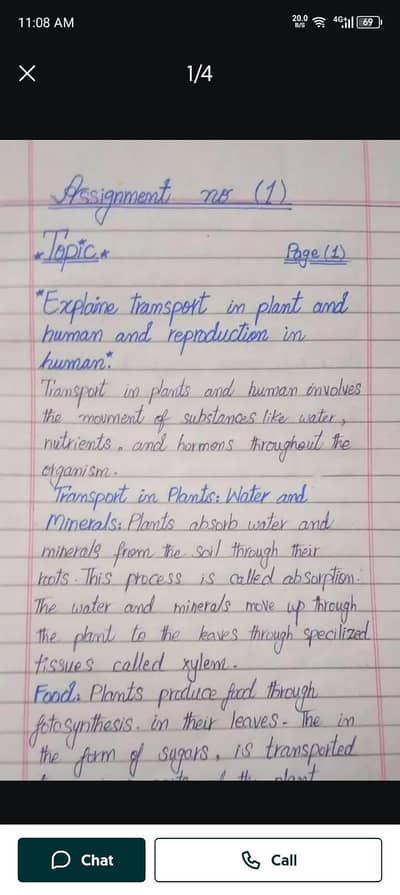 11:08 AM
20.0 B/S 4G 69
1/4
Assignment no (1)
*Topic*
Page (1)
"Explaine transport in plant and
human and reproduction in
human".
Transport in plants and human involves
the movment of substances like water,
nutrients, and hormons throughout the
organism.
Transport in Plants: Water and
Minerals: Plants absorb water and
minerals from the soil through their
roots. This process is called absorption.
The water and minerals move up through
the plant to the leaves through specilized
tissues called xylem.
Food: Plants produce food through
fotosynthesis. in their leaves. The in
the form of sugars, is transported
the plant
Chat
Call